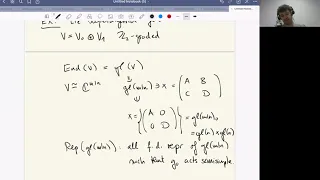 Ex. Lie superalgebra
V = V₀ ⊕ V₁ ℤ₂-graded
End(V) = gl(V)
V ≅ ℂ^{m|n} gl(m|n) ∋ x = (A B
C D)
x = {(A 0
0 D)} = gl(m|n)₀
= gl(m) × gl(n)
Rep(gl(m|n)): all f.d. repr of gl(m|n)
such that g₀ acts semisimple